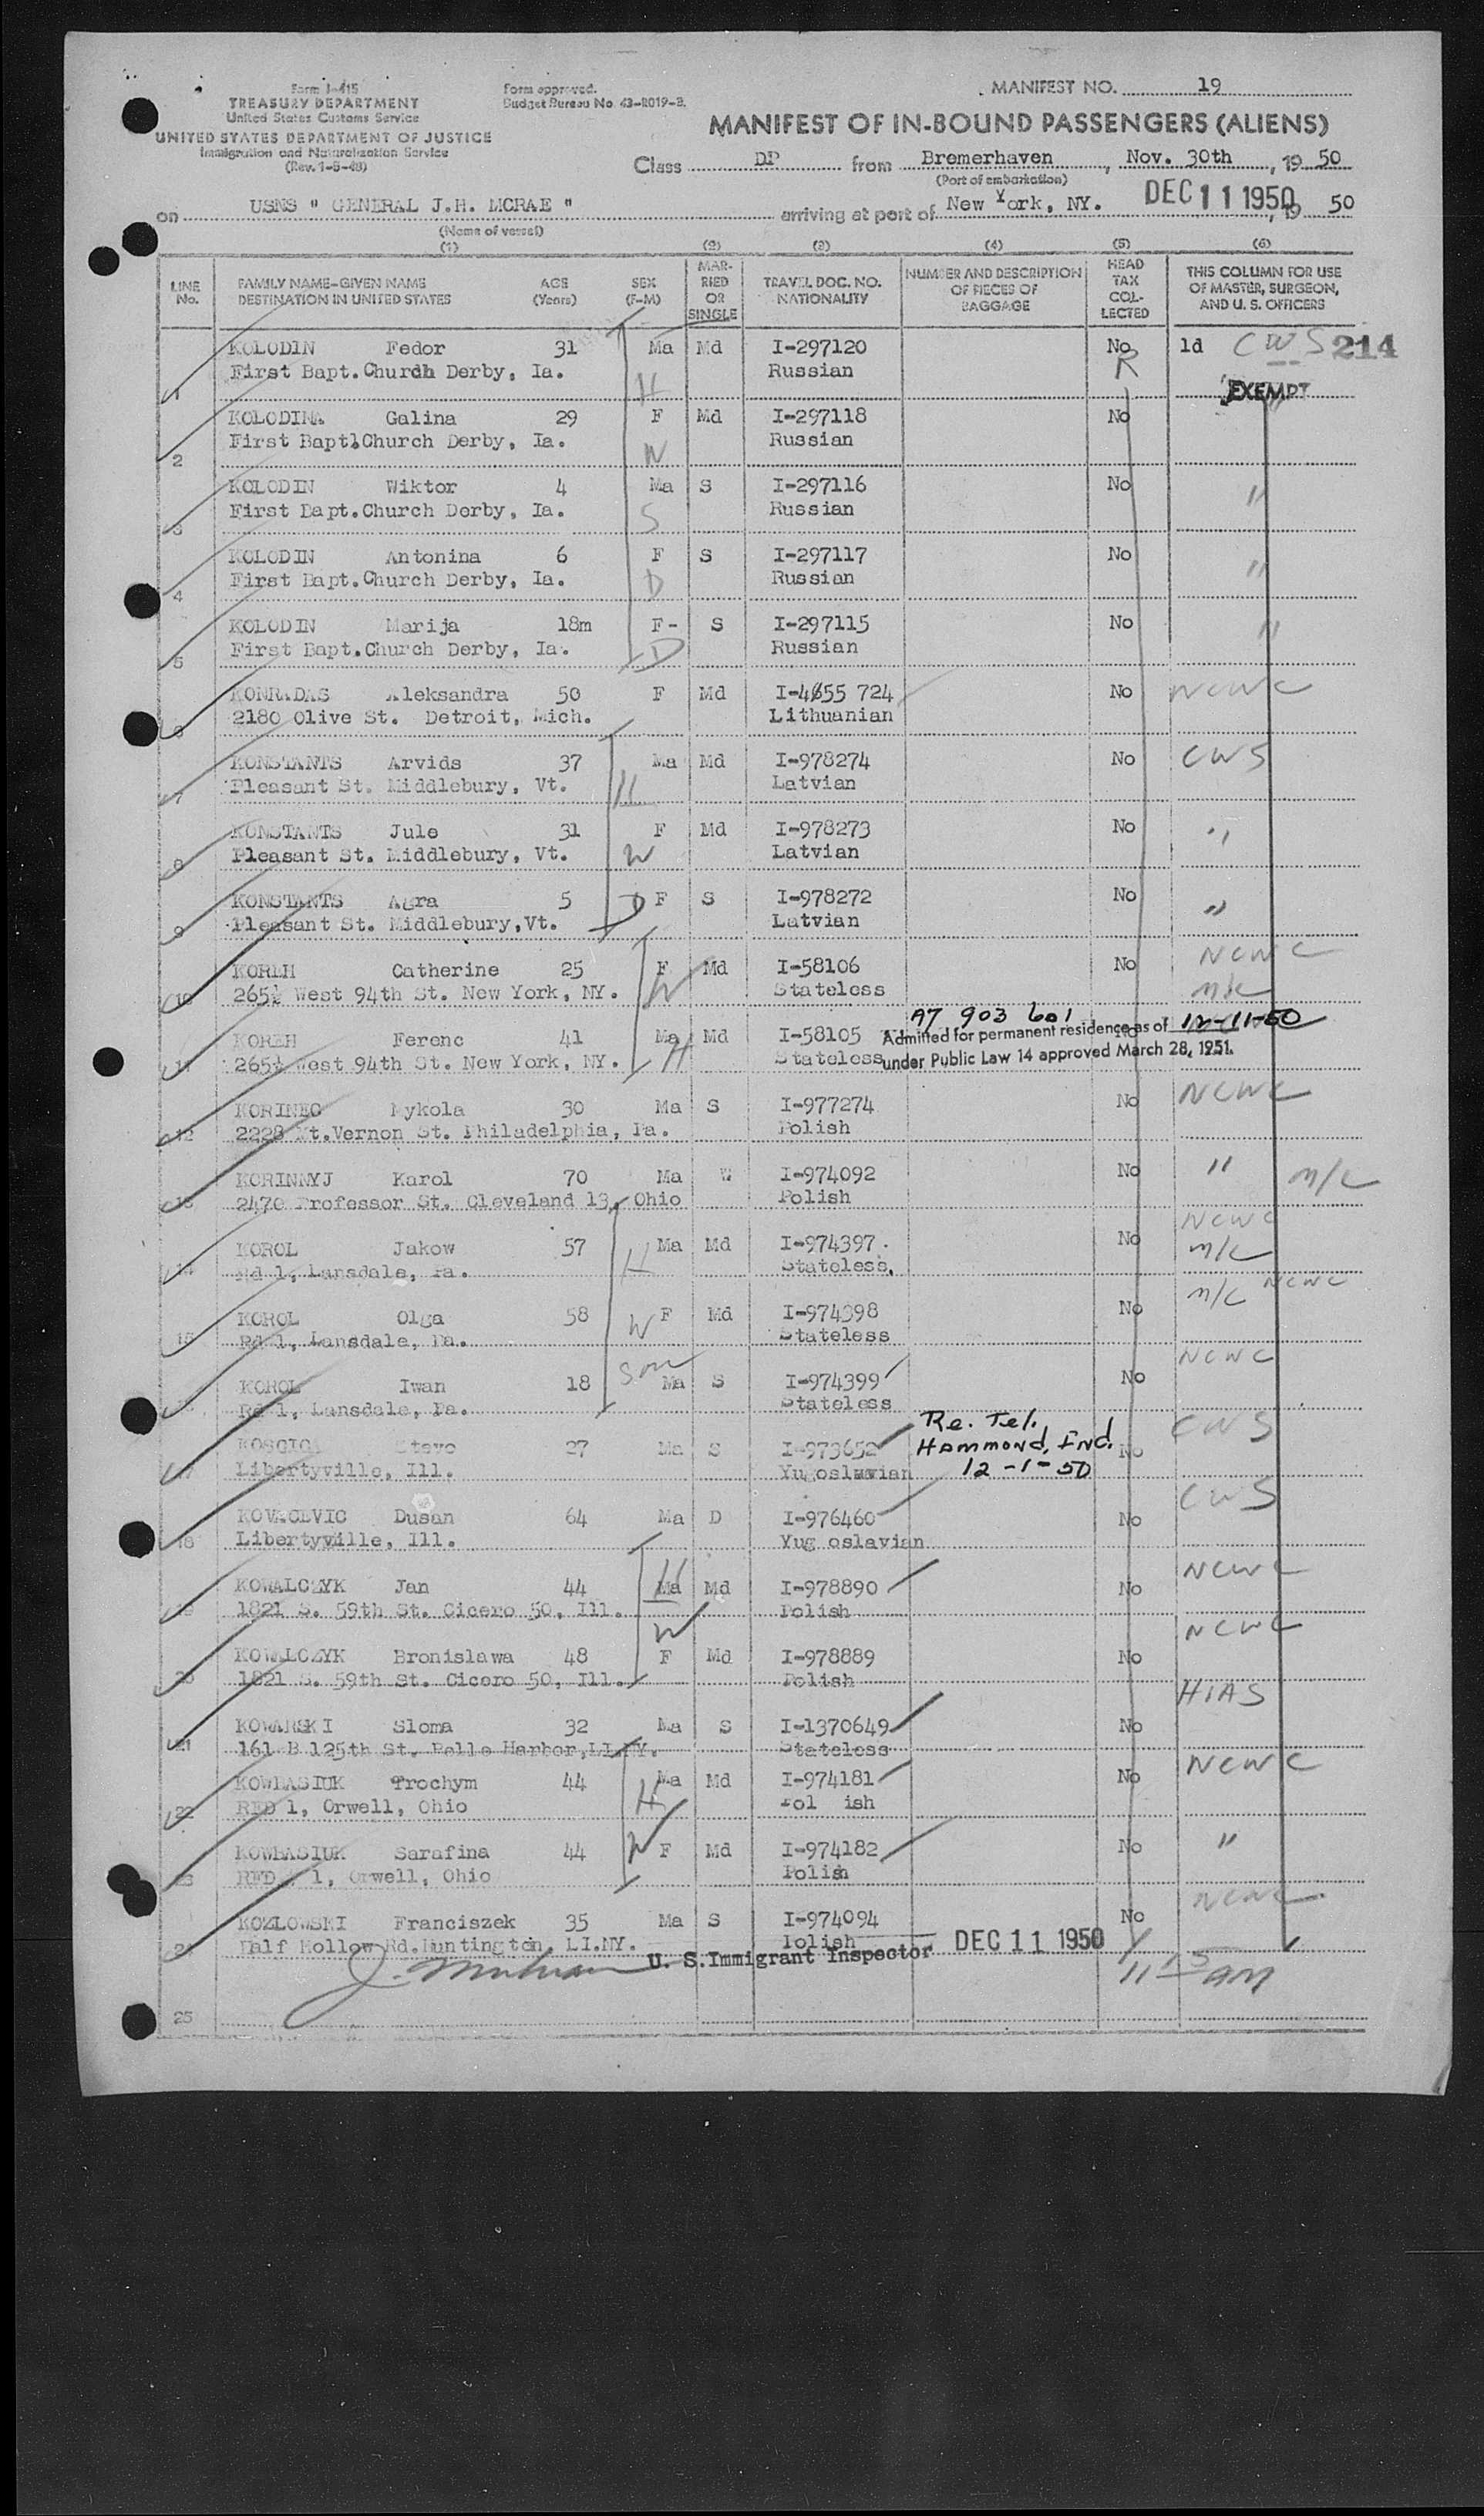 Form I-415
TREASURY DEPARTMENT
United States Customs Service
UNITED STATES DEPARTMENT OF JUSTICE
Immigration and Naturalization Service
(Rev. 1-5-48)
Form approved.
Budget Bureau No. 43-R019-2.
MANIFEST NO. 19
MANIFEST OF IN-BOUND PASSENGERS (ALIENS)
Class DP from Bremerhaven, Nov. 30th, 19 50
(Port of embarkation)
on USNS " GENERAL J.H. MCRAE " arriving at port of New York, NY. DEC 11 1950, 19 50
(Name of vessel)
(1) (2) (3) (4) (5) (6)
LINE No. FAMILY NAME-GIVEN NAME DESTINATION IN UNITED STATES AGE (Years) SEX (F-M) MARRIED OR SINGLE TRAVEL DOC. NO. NATIONALITY NUMBER AND DESCRIPTION OF PIECES OF BAGGAGE HEAD TAX COLLECTED THIS COLUMN FOR USE OF MASTER, SURGEON, AND U. S. OFFICERS
KOLODIN Fedor 31 Ma Md I-297120 No 1d CWS 214
1 First Bapt.Church Derby, Ia. H Russian R EXEMPT
KOLODINA Galina 29 F Md I-297118 No "
2 First Bapt.Church Derby, Ia. W Russian
KOLODIN Wiktor 4 Ma S I-297116 No "
3 First Bapt.Church Derby, Ia. S Russian
KOLODIN Antonina 6 F S I-297117 No "
4 First Bapt.Church Derby, Ia. D Russian
KOLODIN Marija 18m F- S I-297115 No "
5 First Bapt.Church Derby, Ia. D Russian
KONRADAS Aleksandra 50 F Md 724 No NCWC
6 2180 Olive St. Detroit, Mich. Lithuanian
KONSTANTS Arvids 37 Ma Md I-978274 No CWS
7 Pleasant St. Middlebury, Vt. H Latvian
KONSTANTS Jule 31 F Md I-978273 No "
8 Pleasant St. Middlebury, Vt. W Latvian
KONSTANTS 5 D F S I-978272 No "
9 Pleasant St. Middlebury,Vt. Latvian
KOREH Catherine 25 F Md I-58106 No NCWC
10 265½ West 94th St. New York, NY. W Stateless m/c
A7 903 601
KOREH Ferenc 41 Ma Md I-58105 Admitted for permanent residence as of 12-11-50
11 265½ West 94th St. New York, NY. H Stateless under Public Law 14 approved March 28, 1951.
KORINEC Mykola 30 Ma S I-977274 No NCWC
12 2228 Mt.Vernon St. Philadelphia, Pa. Polish
KORINNYJ Karol 70 Ma W I-974092 No " m/c
13 2470 Professor St. Cleveland 13, Ohio Polish
KOROL Jakow 57 Ma Md I-974397 No NCWC
14 Rd 1, Lansdale, Pa. H Stateless. m/c
KOROL Olga 58 F Md I-974398 No m/c NCWC
15 Rd 1, Lansdale, Pa. W Stateless
KOROL Iwan 18 son Ma S I-974399 No NCWC
Rd 1, Lansdale, Pa. Stateless
Re. Tel.
Stevo 27 Ma S I-973652 Hammond, Ind. No CWS
17 Libertyville, Ill. Yugoslavian 12-1-50
KOVACEVIC Dusan 64 Ma D I-976460 No CWS
18 Libertyville, Ill. Yug oslavian
KOWALCZYK Jan 44 H Ma Md I-978890 No NCWC
19 1821 S. 59th St. Cicero 50, Ill. Polish
KOWALCZYK Bronislawa 48 W F Md I-978889 No NCWC
20 1821 S. 59th St. Cicero 50, Ill. Polish
KOWARSKI Sloma 32 Ma S I-1370649 No HIAS
21 161 B 125th St. Belle Harbor,LI.NY. Stateless
KOWBASIUK Trochym 44 Ma Md I-974181 No NCWC
22 RFD 1, Orwell, Ohio H Pol ish
KOWBASIUK Sarafina 44 W F Md I-974182 No "
23 RFD 1, Orwell, Ohio Polish
KOZLOWSKI Franciszek 35 Ma S I-974094 No NCWC
24 Half Hollow Rd.Huntington, LI.NY. Polish
U. S. Immigrant Inspector DEC 11 1950 11 15 AM
25